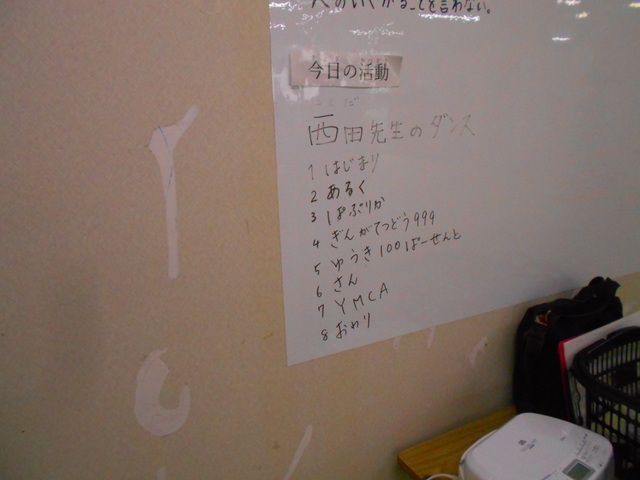 人のいやがることを言わない。
今日の活動
西田先生のダンス
1 はじまり
2 あるく
3 ぱぷりか
4 ぎんがてつどう999
5 ゆうき100ぱーせんと
6 さん
7 YMCA
8 おわり